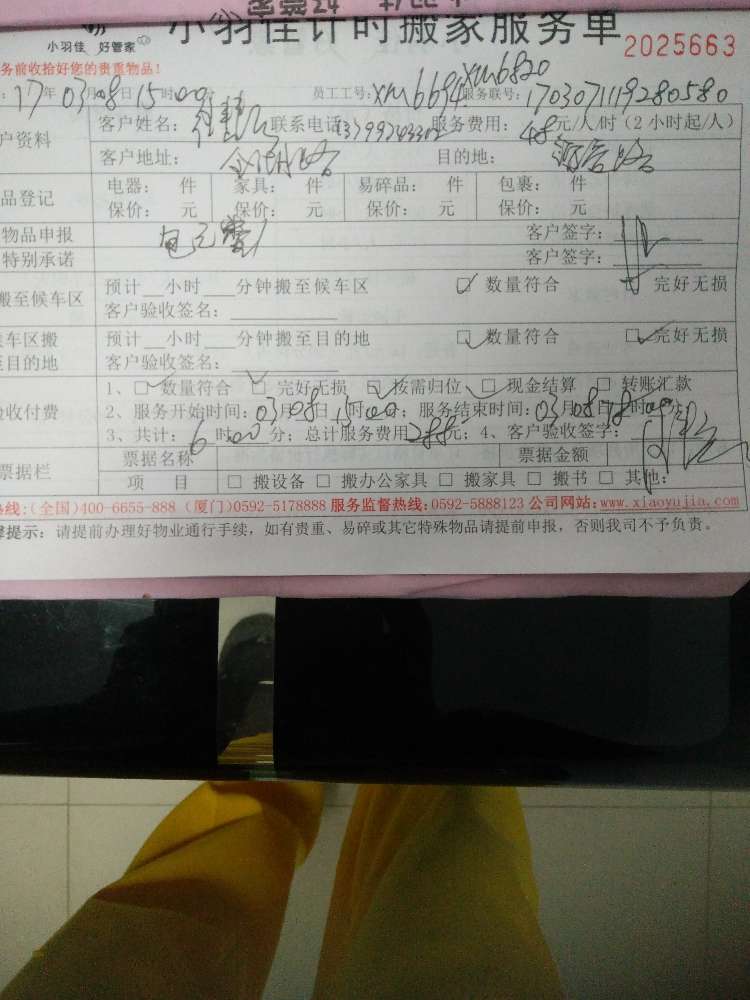 小羽佳计时搬家服务单
小羽佳 好管家 2025663
务前收拾好您的贵重物品!
xm6820
: 17年 03月08日15时00 员工工号: xm6694 服务联号: 170307119280580
户资料 客户姓名: 联系电话: 服务费用: 48元/人/时 (2小时起/人)
客户地址: 目的地:
品登记 电器: 件 家具: 件 易碎品: 件 包裹: 件
保价: 元 保价: 元 保价: 元 保价: 元
物品申报 客户签字:
特别承诺 客户签字:
搬至候车区 预计__小时___分钟搬至候车区 数量符合 完好无损
客户验收签名:
车区搬 预计__小时___分钟搬至目的地 数量符合 完好无损
至目的地 客户验收签名:
验收付费 1、□数量符合 □完好无损 □按需归位 □现金结算 □转账汇款
2、服务开始时间: 03月08日15时00分; 服务结束时间: 03月08日18时00分;
3、共计: 6时00分; 总计服务费用288元; 4、客户验收签字:
票据栏 票据名称 票据金额
项 目 □搬设备 □搬办公家具 □搬家具 □搬书 □其他:
热线:(全国)400-6655-888 (厦门)0592-5178888 服务监督热线:0592-5888123 公司网站:www.xiaoyujia.com
提示: 请提前办理好物业通行手续, 如有贵重、易碎或其它特殊物品请提前申报, 否则我司不予负责。